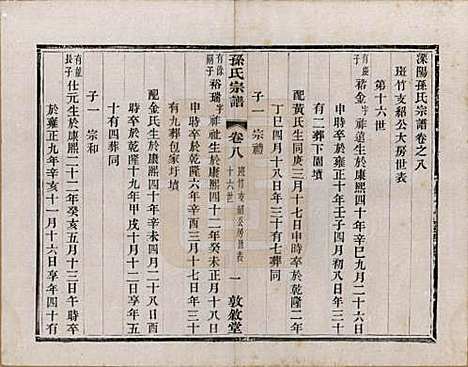 溧陽孫氏宗譜卷之八
斑竹支紹公大房世表
第十六世
有盛長子裕金字祥道生於康熙四十年辛巳九月二十六日
申時卒於雍正十年壬子四月初八日年三十
有二葬下園墳
配黃氏生同庚三月十七日申時卒於乾隆二年
丁巳四月十八日年三十有七葬同
子一 宗禮
有 次子裕瑞字祥祉生於康熙四十二年癸未正月十八日
申時卒於乾隆六年辛酉三月十七日年三十
有九葬包家圩墳
配金氏生於康熙四十年辛未四月二十八日酉
時卒於乾隆十九年甲戌十月十二日享年五
十有四葬同
子一 宗和
有 長子仕元生於康熙二十二年癸亥五月十三日午時卒
於雍正九年辛亥十一月十六日享年四十有
孫氏宗譜
卷八
斑竹支紹公大房世表
十六世
一
敦敘堂